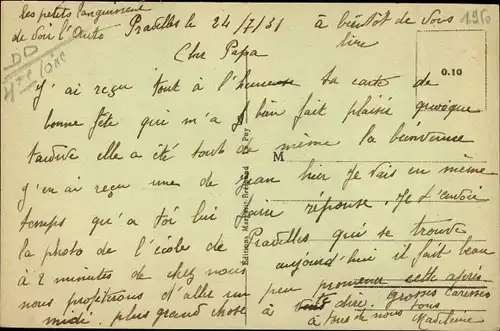 les petits languissent
de voir l'Auto
Pradelles le 24/7/31
à bientôt de vous
lire
Cher Papa
J'ai reçu tout à l'heure ta carte de
bonne fête qui m'a bien fait plaisir quoique
tardive elle a été tout de même la bienvenue
j'en ai reçu une de Jean hier Je vais en même
temps qu'à toi lui faire réponse. Je t'envoie
la photo de l'école de Pradelles qui se trouve
à 2 minutes de chez nous aujourd'hui il fait beau
nous profitons d'aller un peu promener cette après
midi. plus grand chose à te dire. Grosses caresses
à tous de nous tous
Madeleine
M
0.10
Éditions Margerit-Brémond - Le Puy